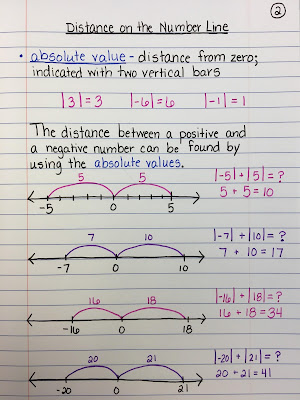 2
Distance on the Number Line
• absolute value - distance from zero;
indicated with two vertical bars
|3| = 3 |-6| = 6 |-1| = 1
The distance between a positive and
a negative number can be found by
using the absolute values.
5 5 |-5| + |5| = ?
5 + 5 = 10
-5 0 5
7 10 |-7| + |10| = ?
7 + 10 = 17
-7 0 10
16 18 |-16| + |18| = ?
16 + 18 = 34
-16 0 18
20 21 |-20| + |21| = ?
20 + 21 = 41
-20 0 21